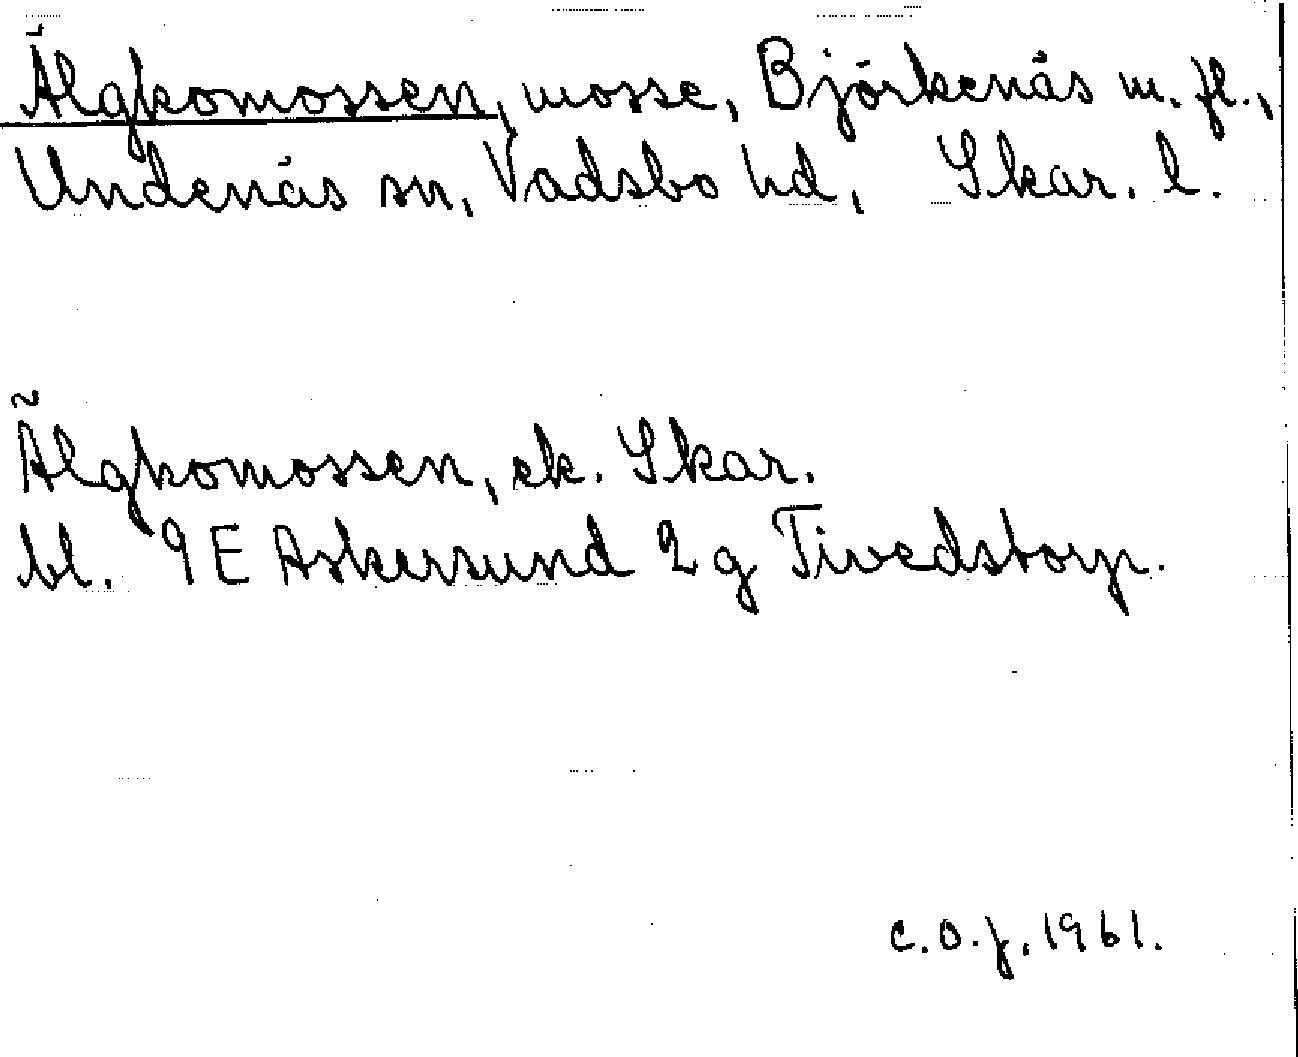 Älgkomossen, mosse, Björkenäs m. fl.,
Undenäs sn, Vadsbo hd, Skar. l.
Älgkomossen, ek. Skar.
bl. 9 E Askersund 2 g Tivedstorp.
C.O.f. 1961.